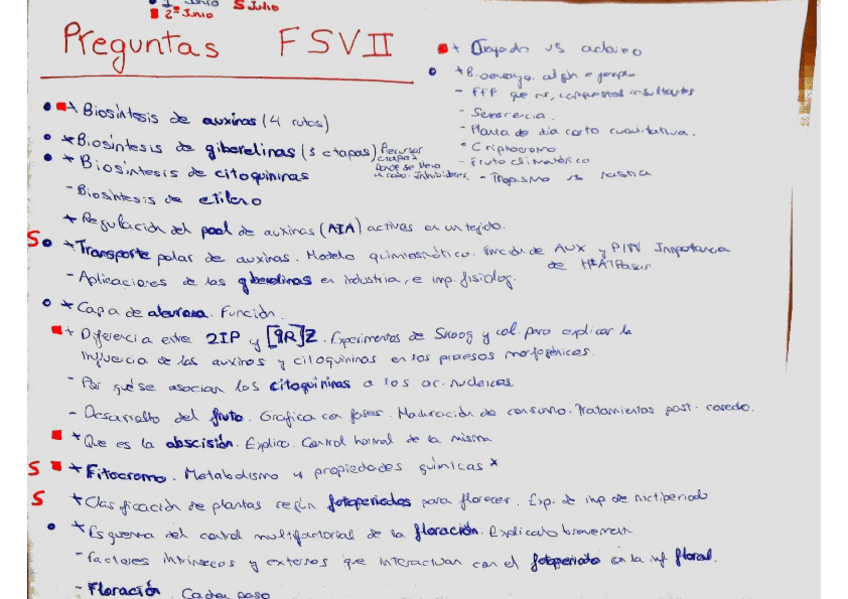 1º Junio S Julio
2º Junio
Preguntas FSVII
* Biosíntesis de auxinas (4 rutas)
* Biosíntesis de giberelinas (3 etapas) Precursor
etapas
Donde se lleva
a cabo. Inhibidores.
* Biosíntesis de citoquininas
- Biosíntesis de etileno
* Regulación del pool de auxinas (AIA) activas en un tejido.
S * Transporte polar de auxinas. Modelo quimiosmótico. Función de AUX y PIN Importancia
de H+ATPasas
- Aplicaciones de las giberelinas en industria, e imp. fisiolog.
* Capa de aleurona. Función.
* Diferencia entre 2IP y [9R]Z. Experimentos de Skoog y col. para explicar la
influencia de las auxinas y citoquininas en los procesos morfogénicos.
- Por qué se asocian las citoquininas a los ac. nucleicos
- Desarrollo del fruto. Grafica con fases. Maduración de consumo. Tratamientos post-
* Que es la abscisión. Explica. Control hormal de la misma
S * Fitocromo. Metabolismo y propiedades químicas *
S * Clasificación de plantas según fotoperiodos para florecer. Exp. de imp de nictiperiodo
* Esquema del control multifactorial de la floración. Explicalo brevement
- Factores intrínsecos y externos que interactuan con el fotoperiodo en la inf floral.
- Floración. Cada paso
vs
* B. ejemplo
- FFP que es, compuestos resultantes
- Senescencia.
- Planta de dia corto cualitativa.
- Criptocromo
- Fruto climatérico
- Tropismo vs nastia